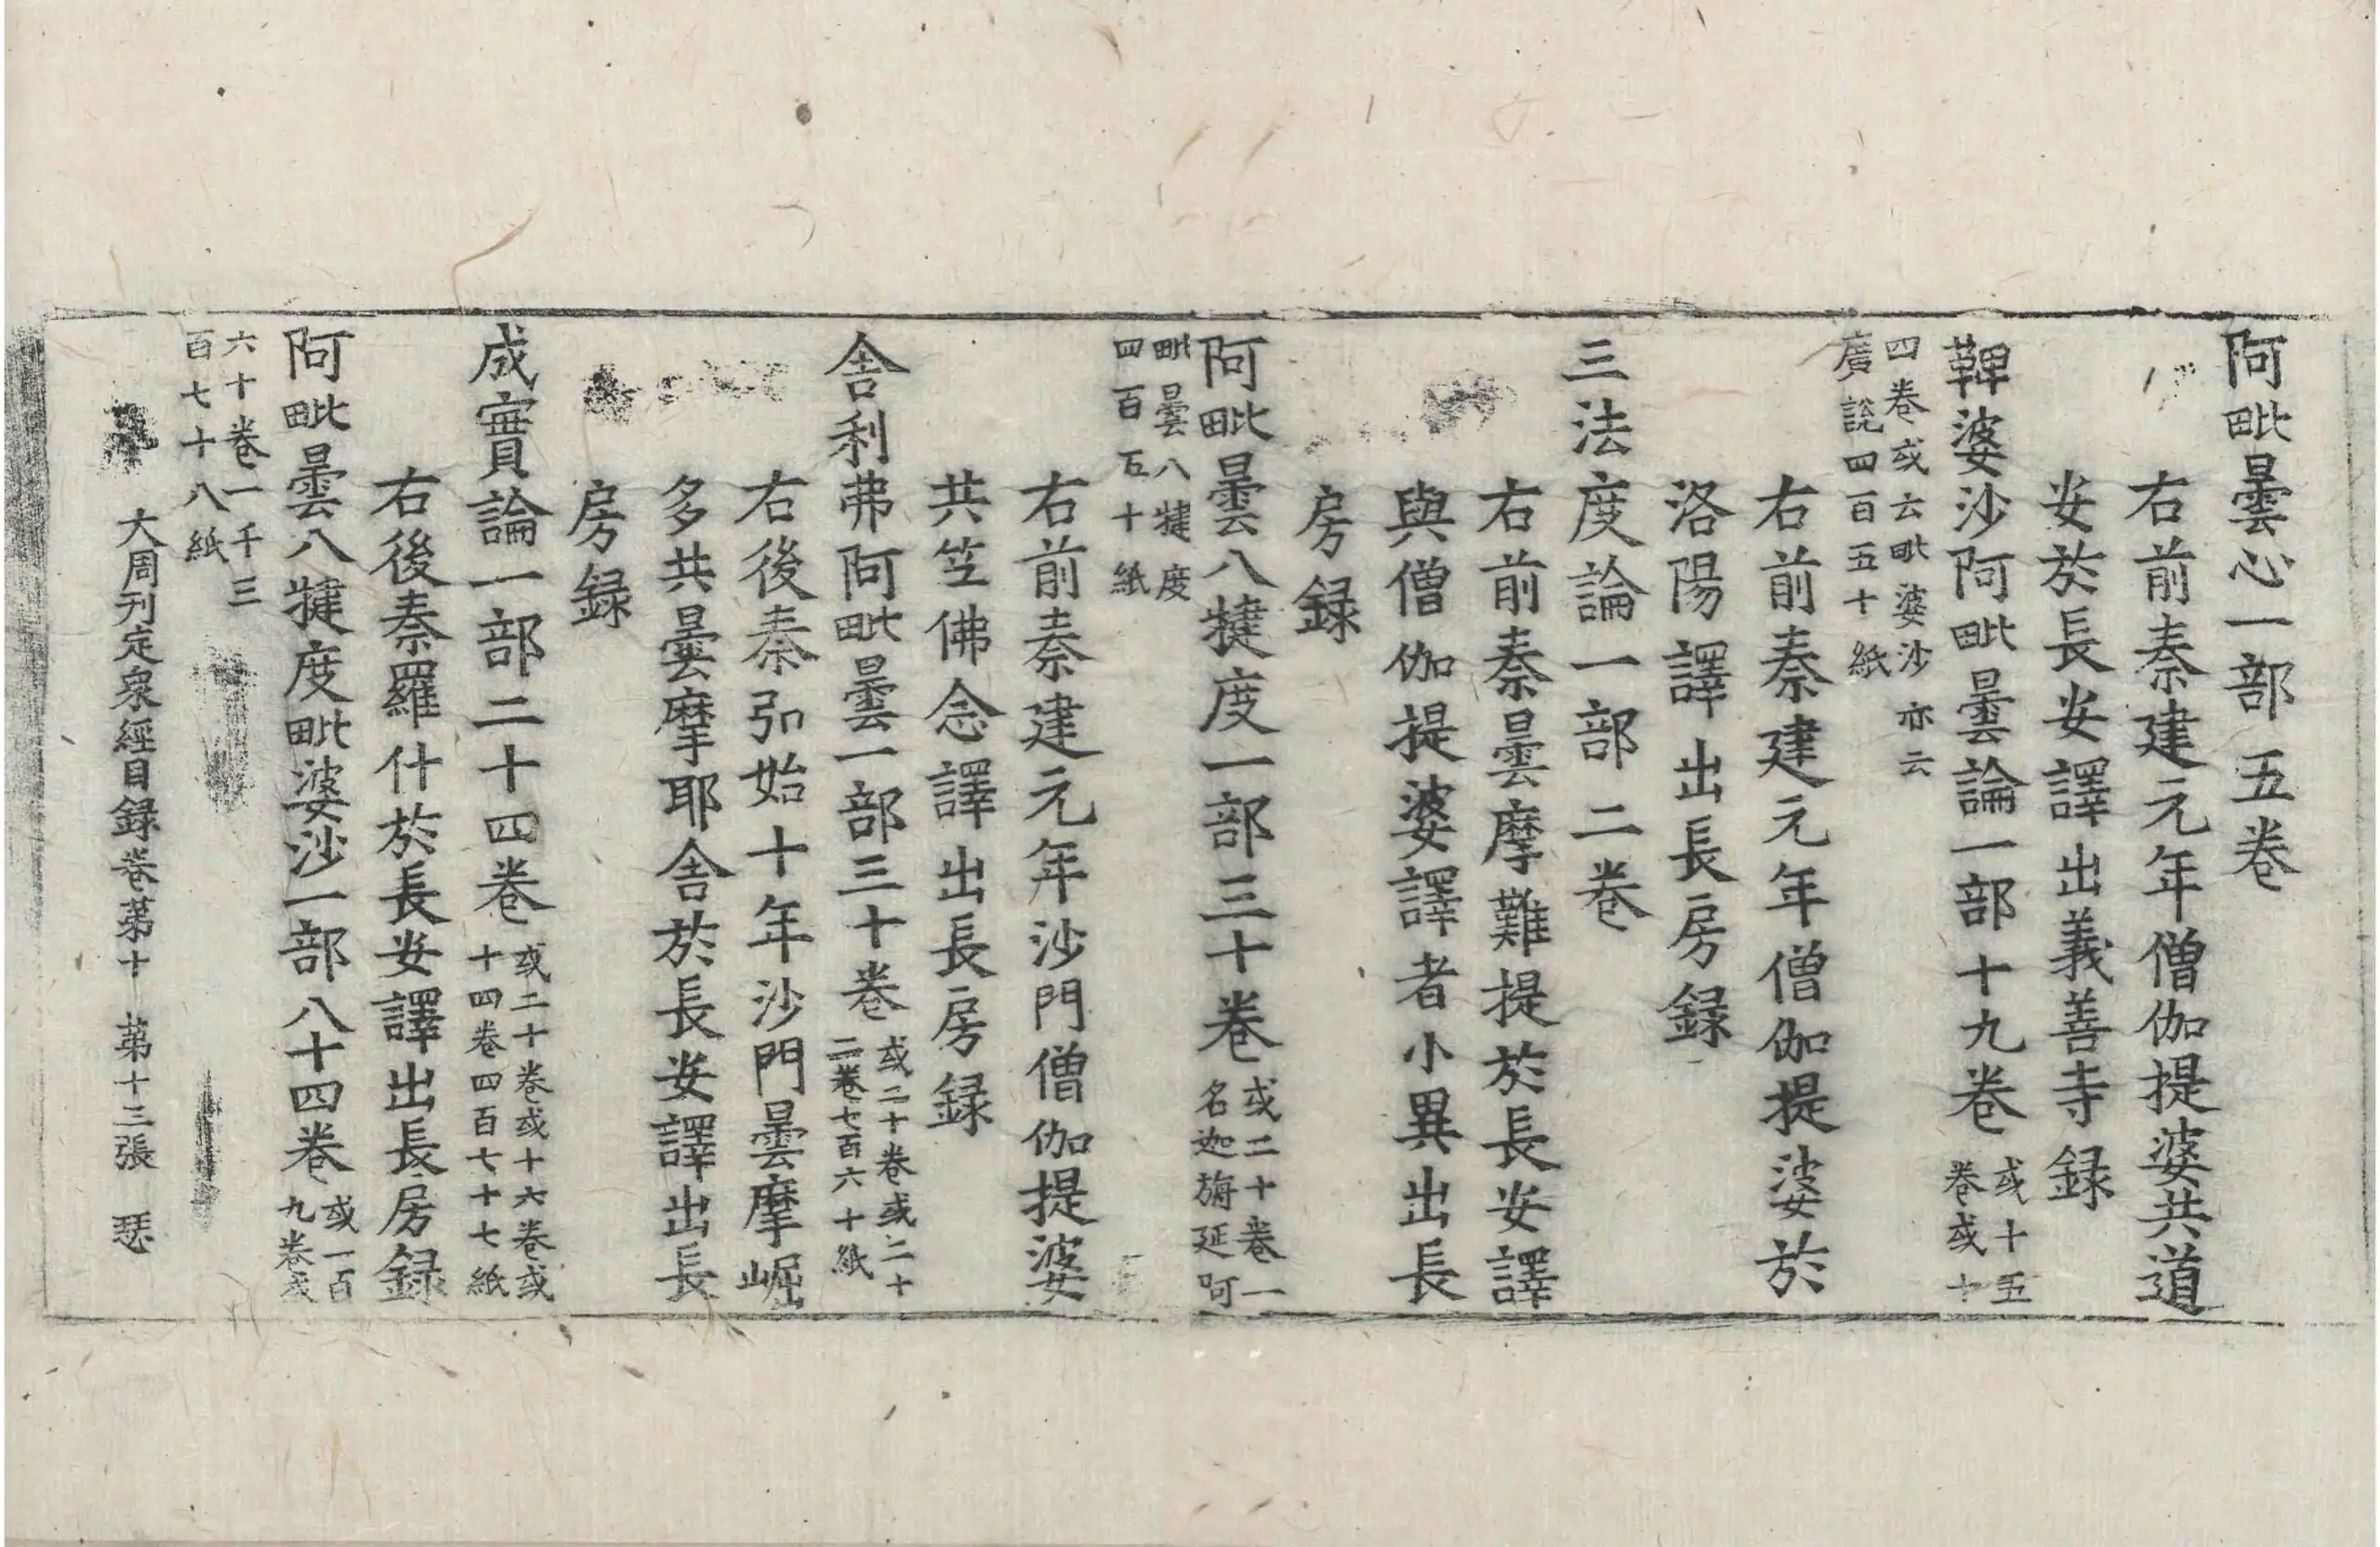 阿毗曇心一部五卷
右前秦建元年僧伽提婆共道
安於長安譯出義善寺録
鞞婆沙阿毗曇論一部十九卷
或十五
卷或十
四卷或云毗婆沙亦云
廣說四百五十紙
右前秦建元年僧伽提婆於
洛陽譯出長房録
三法度論一部二卷
右前秦曇摩難提於長安譯
與僧伽提婆譯者小異出長
房録
阿毗曇八揵度一部三十卷
或二十卷一
名迦旃延阿
毗曇八揵度
四百五十紙
右前秦建元年沙門僧伽提婆
共竺佛念譯出長房録
舍利弗阿毗曇一部三十卷
或二十卷或二十
二卷七百六十紙
右後秦弘始十年沙門曇摩崛
多共曇摩耶舍於長安譯出長
房録
成實論一部二十四卷
或二十卷或十六卷或
十四卷四百七十七紙
右後秦羅什於長安譯出長房録
阿毗曇八揵度毗婆沙一部八十四卷
或一百
九卷或
六十卷一千三
百七十八紙
大周刊定衆經目録卷第十　第十三張　瑟